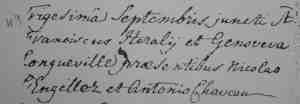 Trigesimâ Septembris juncti st
Franciscus Heraly et Genoveva
Longueville praesentibus Nicolao
Engillez et Antonio Chaveau